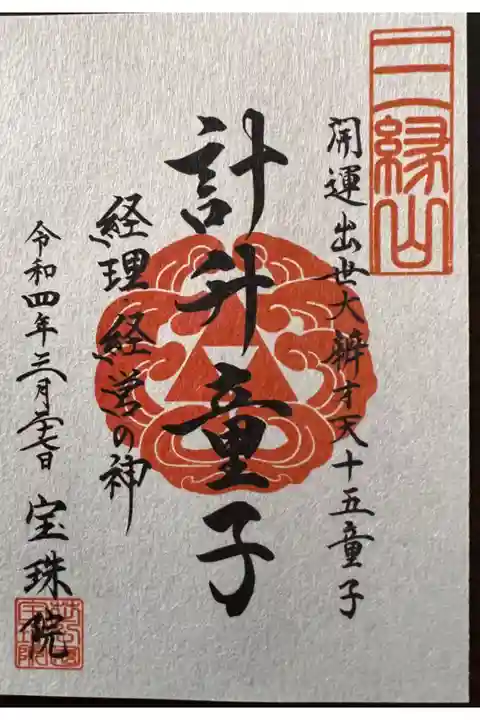 三縁山
開運出世大辨才天十五童子
計升童子
経理・経営の神
令和四年三月廿七日 宝珠院